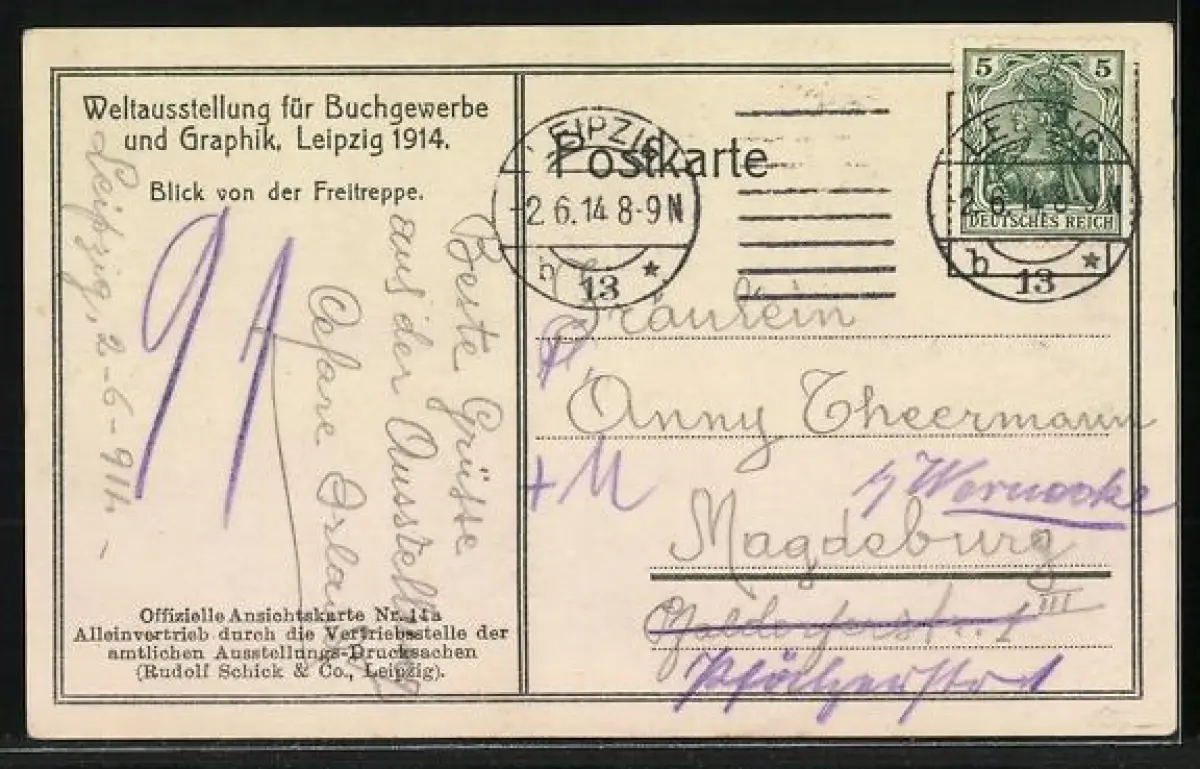 Weltausstellung für Buchgewerbe
und Graphik, Leipzig 1914.
Blick von der Freitreppe.
Leipzig, 2-6-914.-
Beste Grüsse
aus der Ausstellung
91
Offizielle Ansichtskarte Nr. 14a
Alleinvertrieb durch die Vertriebsstelle der
amtlichen Ausstellungs-Drucksachen
(Rudolf Schick & Co., Leipzig).
Postkarte
LEIPZIG
-2.6.14 8-9N
b 13 *
5 5
DEUTSCHES REICH
LEIPZIG
-2.6.14 8-9N
b 13 *
Fräulein
Anny Theermann
+ M
Magdeburg
III